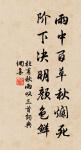 雨中百草秋爛死
階下决明顏色鮮
杜甫秋雨嘆三首詞典